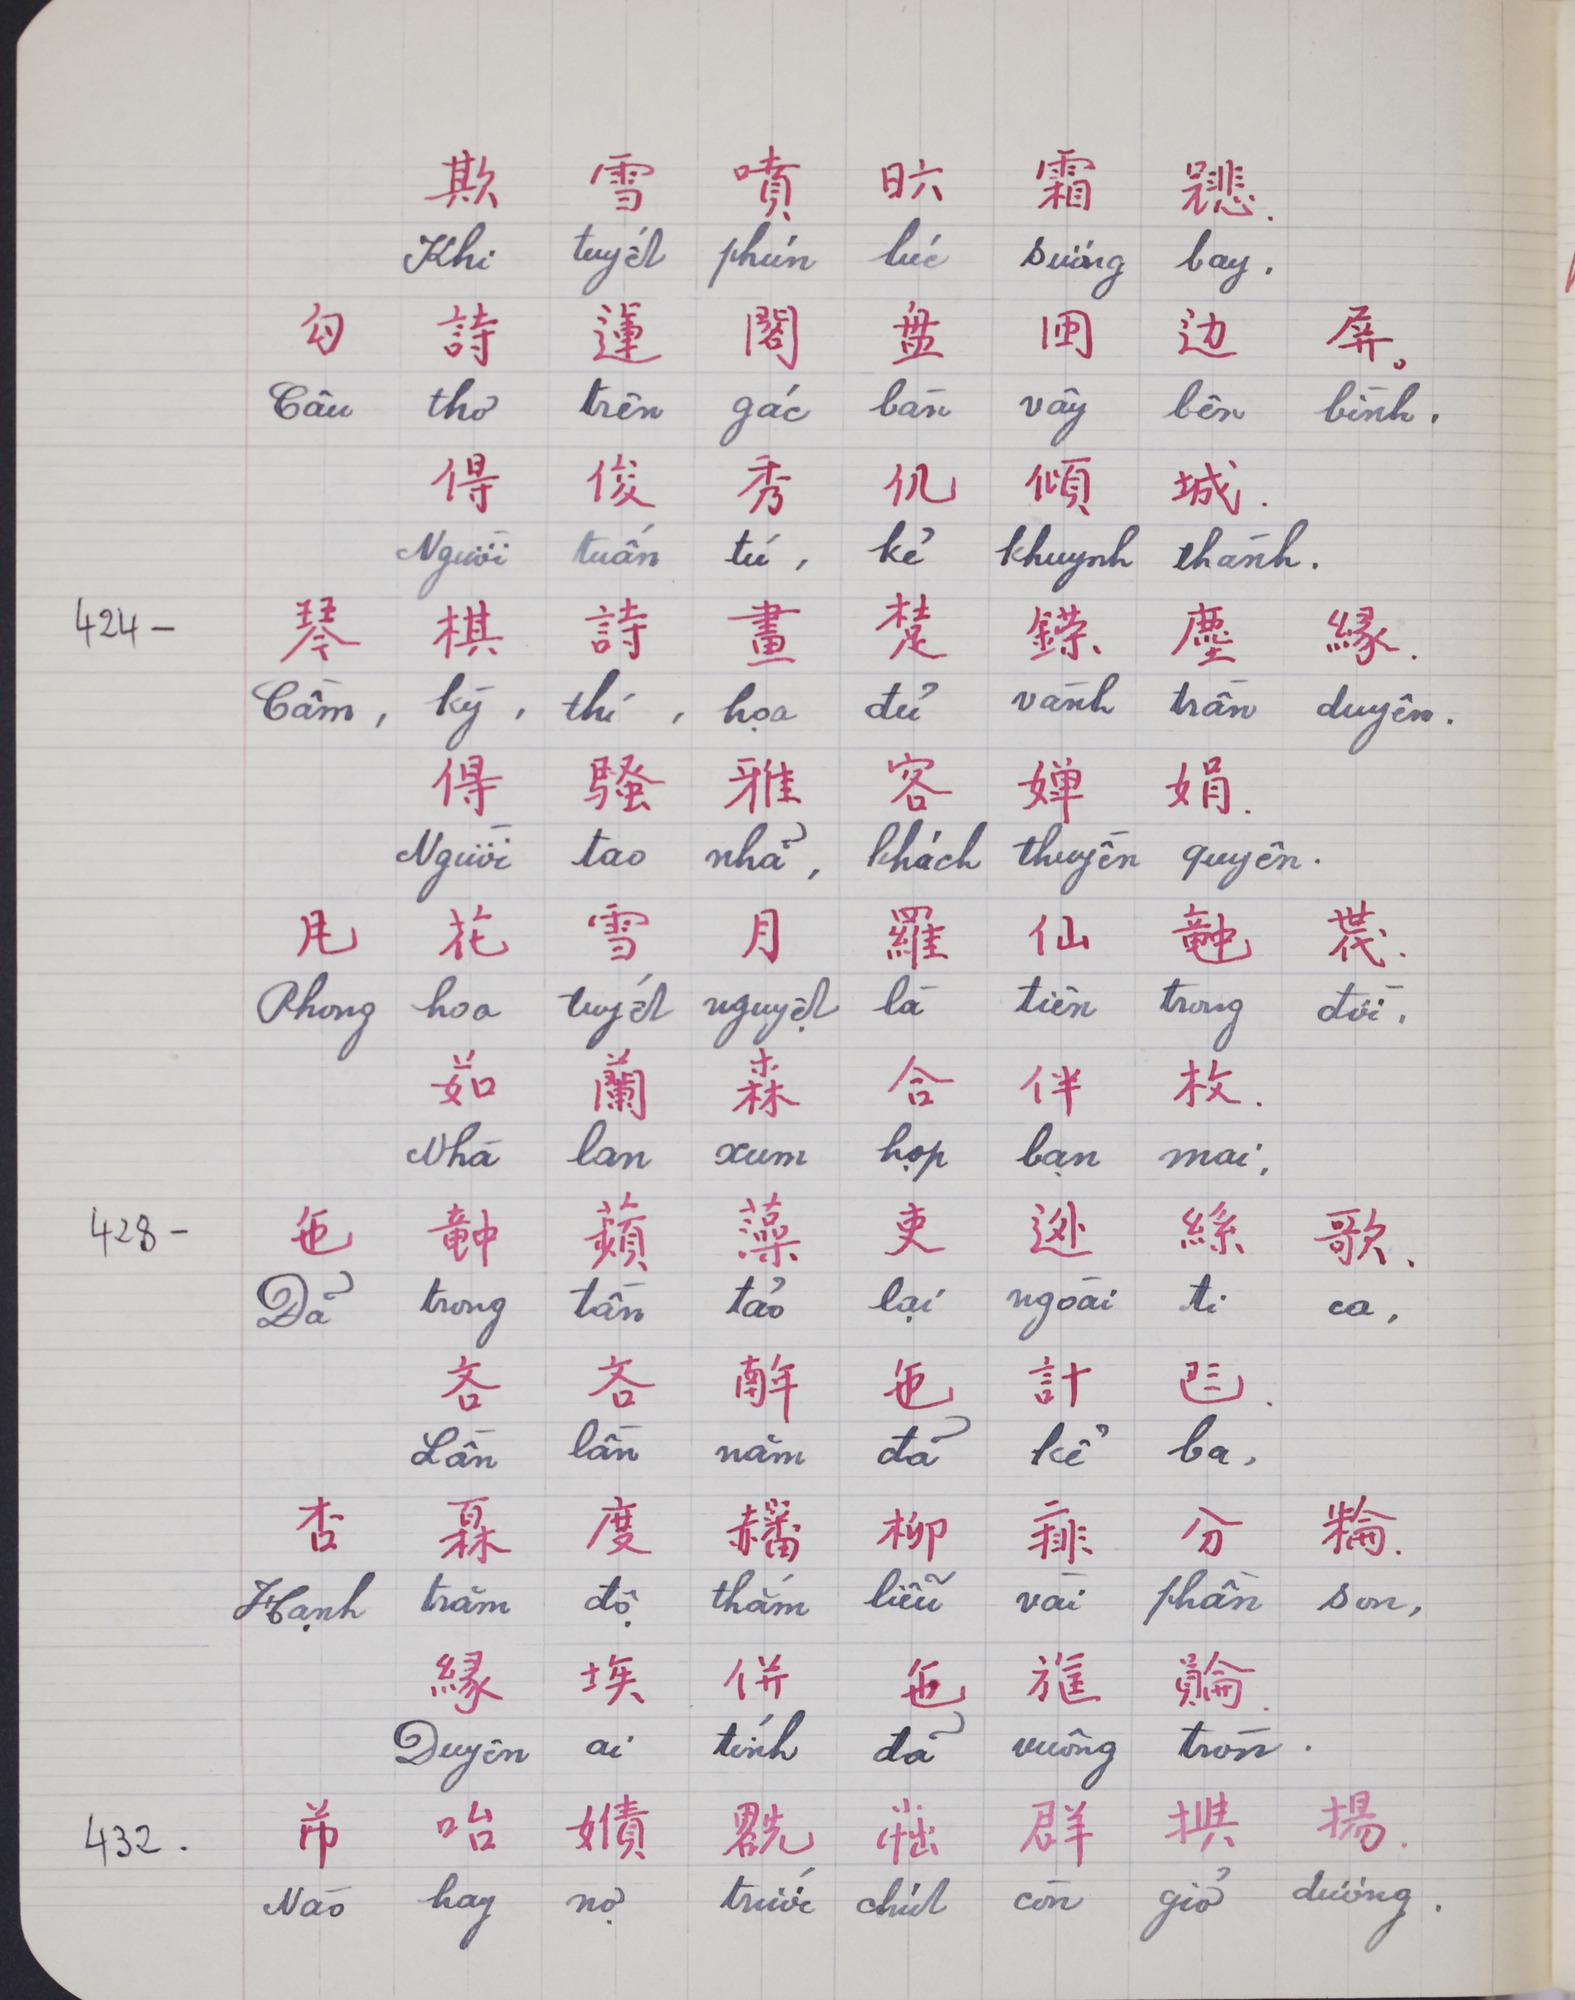 欺 雪 噴 𣅶 霜 𢒎.
Khi tuyết phún lúc sương bay.
勾 詩 蓮 閣 盘 囲 边 屏。
Câu thơ trên gác bàn vây bên bình.
得 俊 秀 仉 傾 城.
Người tuấn tú, kẻ khuynh thành.
424 – 琴 棋 詩 畫 𨇜 鑅 塵 緣.
Cầm, kỳ, thi, họa đủ vành trần duyên.
得 騷 雅 客 嬋 娟.
Người tao nhả, khách thuyền quyên.
花 雪 月 羅 仙 𥪝 𠁀.
Phong hoa tuyết nguyệt là tiên trong đời.
茹 蘭 森 合 伴 枚.
Nhà lan xum họp bạn mai.
428 – 㐌 𥪝 蘋 藻 吏 外 絲 歌.
Dả trong tần tảo lại ngoài ti ca.
吝 吝 𢆥 㐌 計 𠀧.
Lần lần năm đả kể ba.
杏 𤾓 度 𧺀 柳 排 分 𣘈.
Hạnh trăm độ thắm liễu vài phần son.
緣 埃 併 㐌 𣃱 𧷺.
Duyên ai tính đả vuông tròn.
432. 芇 咍 𠎪 𠓀 拙 群 𢷀 揚.
Nào hay nợ trước chút còn giở dương.